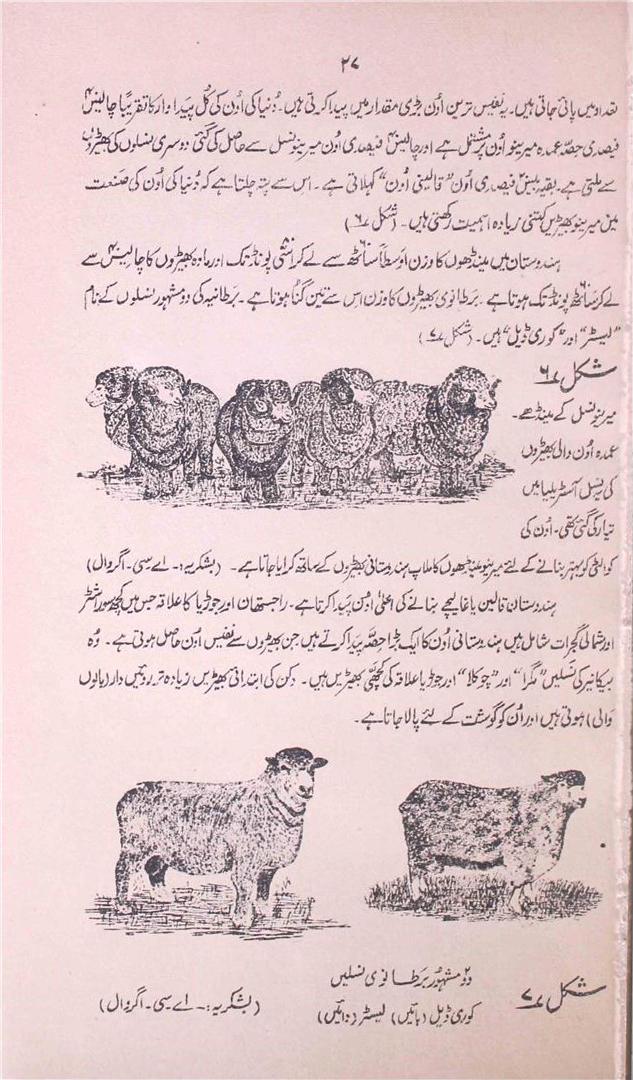 ۲۷
تعداد میں پائی جاتی ہیں۔ یہ نفیس ترین اُون بڑی مقدار میں پیدا کرتی ہیں۔ دُنیا کی اُون کی کُل پیداوار کا تقریباً چالیس۴۰
فیصدی حصّہ عمدہ میرینو اُون پر مشتمل ہے اور چالیس۴۰ فیصدی اُون میرینو نسل سے حاصل کی گئی دوسری نسلوں کی بھیڑوں
سے ملتی ہے۔ بقیہ بیس۲۰ فیصدی اُون ”قالینی اُون“ کہلاتی ہے۔ اس سے پتہ چلتا ہے کہ دُنیا کی اُون کی صنعت
میں میرینو بھیڑیں کتنی زیادہ اہمیت رکھتی ہیں۔ (شکل ۶)
ہندوستان میں مینڈھوں کا وزن اوسطاً ساٹھ۶۰ سے لے کر اسّی۸۰ پونڈ تک اور مادہ بھیڑوں کا چالیس۴۰ سے
لے کر ساٹھ۶۰ پونڈ تک ہوتا ہے۔ برطانوی بھیڑوں کا وزن اس سے تین گُنا ہوتا ہے۔ برطانیہ کی دو مشہور نسلوں کے نام
”لیسٹر“ اور ”کوری ڈیل“ ہیں۔ (شکل ۷)
شکل ۶
میرینو نسل کے مینڈھے۔
عمدہ اُون والی بھیڑوں
کی یہ نسل آسٹریلیا میں
تیار کی گئی تھی۔ اُون کی
کوالٹی کو بہتر بنانے کے لئے میرینو مینڈھوں کا ملاپ ہندوستانی بھیڑوں کے ساتھ کرایا جاتا ہے۔ (بشکریہ:۔ اے۔سی۔ اگروال)
ہندوستان قالین یا غالیچے بنانے کی اعلیٰ اُون پیدا کرتا ہے۔ راجستھان اور جوڑیا کا علاقہ جس میں کچھ سوراشٹر
اور شمالی گجرات شامل ہیں ہندوستانی اُون کا ایک بڑا حصّہ پیدا کرتے ہیں جن بھیڑوں سے نفیس اُون حاصل ہوتی ہے۔ وُہ
بیکانیر کی نسلیں ”مگرا“ اور ”چوکلا“ اور جوڑیا علاقہ کی کچھّی بھیڑیں ہیں۔ دکن کی ابتدائی بھیڑیں زیادہ تر روئیں دار (بالوں
والی) ہوتی ہیں اور اُن کو گوشت کے لئے پالا جاتا ہے۔
شکل ۷
دو۲ مشہور برطانوی نسلیں
کوری ڈیل (بائیں) لیسٹر (دائیں)
(بشکریہ:۔ اے۔سی۔ اگروال)